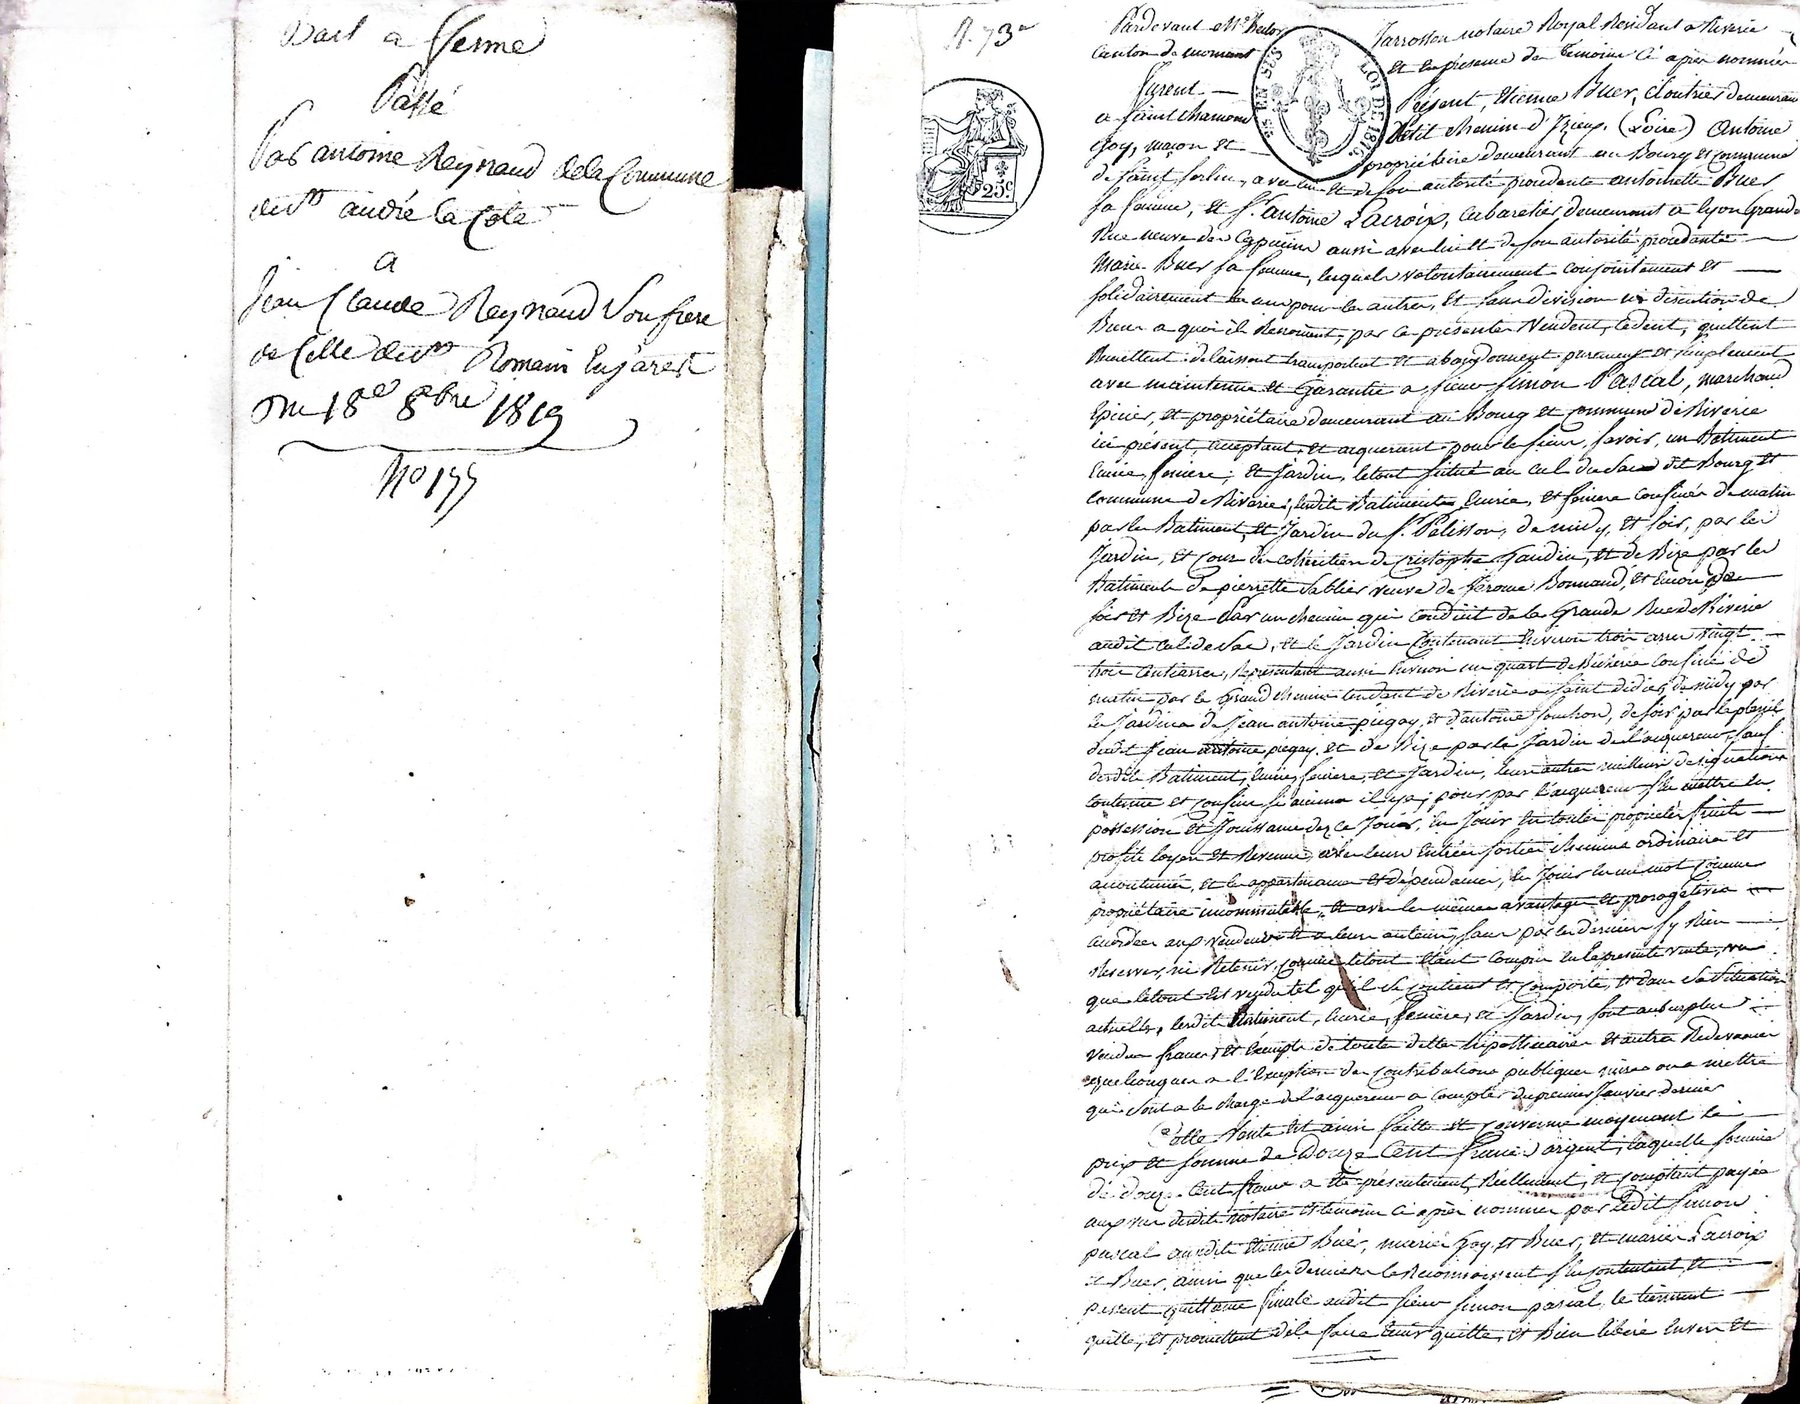 Bail a ferme
Passé
Par antoine Reynaud de la Commune
de St andré la Cote
a
Jean Claude Reynaud Son frere
de Celle de St Romain En Jarest
Du 18e 8bre 1819
No 177
N. 73
25c
Pardevant Me Jarrosson notaire Royal Résidant a Riverie
Canton de mornant et En présence des temoins Ci après nommés
furent
Présent, Etienne Buer, Cloutier demeurant
a Saint chamond petit chemin d'Izieux, (Loire) Antoine
Goy, maçon et propriétaire demeurant au Bourg et commune
de Saint Sorlin, avec lui et de Son autorité procedante antoinette Buer
Sa femme, et Sr antoine Lacroix, Cabaretier demeurant a Lyon Grande
Rue neuve des Capucins aussi avec lui et de Son autorité procedante
Marie Buer Sa femme, lesquels volontairement conjointement et
Solidairement les uns pour les autres, et Sans division ni discution de
Biens a quoi ils Renoncent, par ces présentes Vendent, Cedent, quittent
Remettent, delaissent transportent et abandonnent purement et simplement
avec maintenue et Garantie a Sieur Simon Pascal, marchand
Epicier, et propriétaire demeurant au Bourg et commune de Riverie
ici présent, acceptant, et acquerant pour le Sieur, Savoir, un Batiment
Ecurie, feniere, et Jardin, le tout Situé au cul du Sac dit Bourg et
commune de Riverie; lesdits Batiments, Ecurie, et feniere confinés de matin
par les Batiment, et Jardin du Sr Pelisson, de midy, et Soir, par les
Jardin, et Cour des cohéritiers de Cristophe Gaudin, et de Bize par les
Batiments de pierrette Sablier veuve de Jérome Bonnand, et Encore de
Soir et Bize Par un chemin qui conduit de la Grande Rue de Riverie
audit cul de Sac, et le Jardin Contenant Environ trois ares vingt
trois Centiares, Représentant aussi Environ un quart de Bicherée confiné de
matin par le Grand chemin tendant de Riverie a Saint didier, de midy par
les Jardins de Jean antoine piegay, et d'antoine Souchon, de Soir par le
dudit Jean antoine piegay et de Bize par le Jardin de l'acquereur, Sauf
desdits Batiment, Ecurie, feniere, et Jardin, leurs autres meilleurs designations
contenue et confins Si aucuns il y a; pour par l'acquereur S'en mettre en
possession et Jouissance dez ce Jour, En Jouir En toutes proprietés fruits
profits loyers et Revenus, avec leurs Entrées Sorties chemins ordinaires et
accoutumés, et les appartenances et dépendances, En Jouir En un mot Comme
propriétaire incommutable, et avec les mêmes avantages et prerogatives
accordés aux vendeurs et a leurs auteurs, Sans par les derniers S'y Rien
Reserver, ni Retenir, comme le tout Etant Compris En la presente vente, vu
que le tout Est vendu tel qu'il Se contient et Comporte, et dans Sa Situation
actuelle, lesdits Batiment, Ecurie, feniere, et Jardin, Sont au Surplus
vendus francs, et Exempts de toutes dettes hipothécaires et autres Redevances
quelconques a l'Exception des Contributions publiques mises ou a mettre
qui Sont a la charge de l'acquereur a compter du premier Janvier dernier
Cette Vente Est ainsi faite et convenue moyennant le
prix et Somme de Douze Cent francs argent, laquelle Somme
de douze Cent francs a été présentement, Réellement, et Comptant payée
aux vus desdits notaire et temoins Ci après nommés par ledit Simon
pascal audits Etienne Buer, mariés Goy et Buer, et mariés Lacroix
et Buer, ainsi que les derniers le Reconnoissent S'en contentent, et
passent quittance finale audit Sieur Simon pascal, le tiennent
quitte, et promettent de le faire tenir quitte, et Bien libéré Envers et